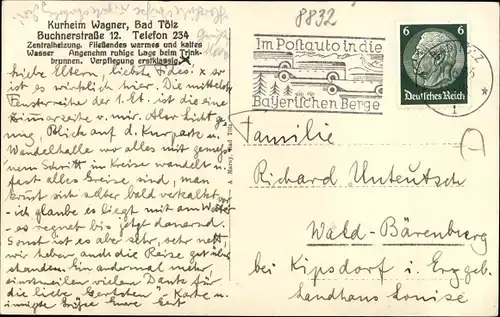 Kurheim Wagner, Bad Tölz
Buchnerstraße 12. Telefon 234
Zentralheizung. Fließendes warmes und kaltes
Wasser Angenehm ruhige Lage beim Trink-
brunnen. Verpflegung erstklassig.
Liebe Eltern, liebste Fides. x er
ist es wirklich hier. Die mittelste
Fensterreihe der 1. Et. ist die
Zimmerreihe v. mir. Aber
Blick auf d. Kurpark u.
Wandelhalle wo alles mit
Schritt im Kreise wandelt u.
fast alles Greise sind, man
kommt sich selber bald verkalkt vor
- ich glaube es liegt mit am Wetter
- es regnet bis jetzt dauernd.
Sonst ist es aber sehr, sehr nett
wir haben auch die Reise gut
standen. Ein andermal mehr,
einstweilen vielen Dank für
die liebe Karte u.
innigste Grüße Eure
8832
Im Postauto in die
Bayerischen Berge
6 6
Deutsches Reich
Familie
Richard Unteutsch
Wald-Bärenburg
bei Kipsdorf i. Erzgeb.
Landhaus Louise